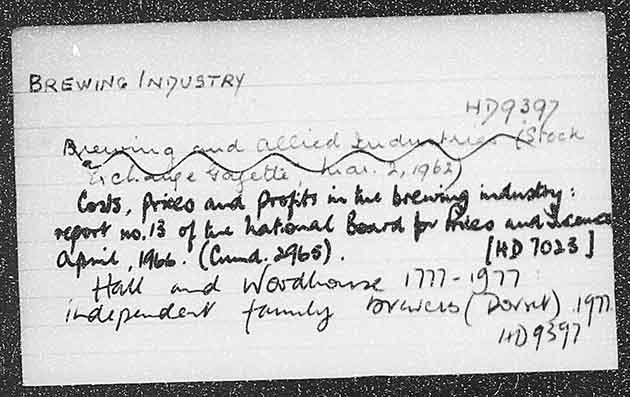 BREWING INDUSTRY
HD9397
Brewing and Allied Industries (Stock
Exchange Gazette, Mar. 2, 1962)
Costs, prices and profits in the brewing industry:
report no. 13 of the National Board for Prices and Incomes
April, 1966. (Cmnd. 2965). [HD 7023]
Hall and Woodhouse 1777-1977:
independent family brewers (Dorset) 1977
HD9397